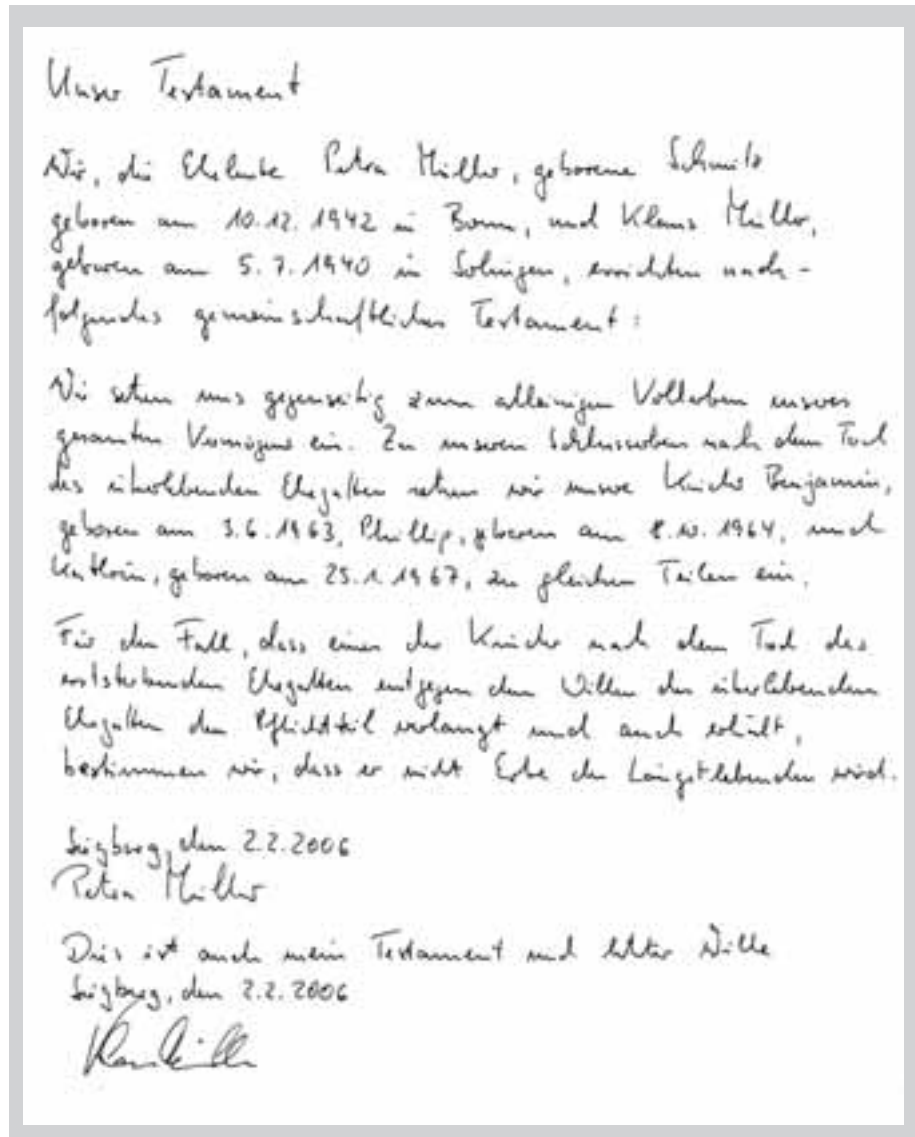 Unser Testament
Wir, die Eheleute Petra Müller, geborene Schmitz
geboren am 10.12.1942 in Bonn, und Klaus Müller,
geboren am 5.7.1940 in Solingen, errichten nach-
folgendes gemeinschaftliches Testament:
Wir setzen uns gegenseitig zum alleinigen Vollerben unseres
gesamten Vermögens ein. Zu unseren Schlusserben nach dem Tod
des überlebenden Ehegatten setzen wir unsere Kinder Benjamin,
geboren am 3.6.1963, Phillip, geboren am 8.10.1964, und
Kathrin, geboren am 25.1.1967, zu gleichen Teilen ein.
Für den Fall, dass eines der Kinder nach dem Tod des
erstversterbenden Ehegatten entgegen dem Willen des überlebenden
Ehegatten den Pflichtteil verlangt und auch erhält,
bestimmen wir, dass er nicht Erbe des Längstlebenden wird.
Siegburg, den 2.2.2006
Petra Müller
Dies ist auch mein Testament und letzter Wille
Siegburg, den 2.2.2006
Klaus Müller